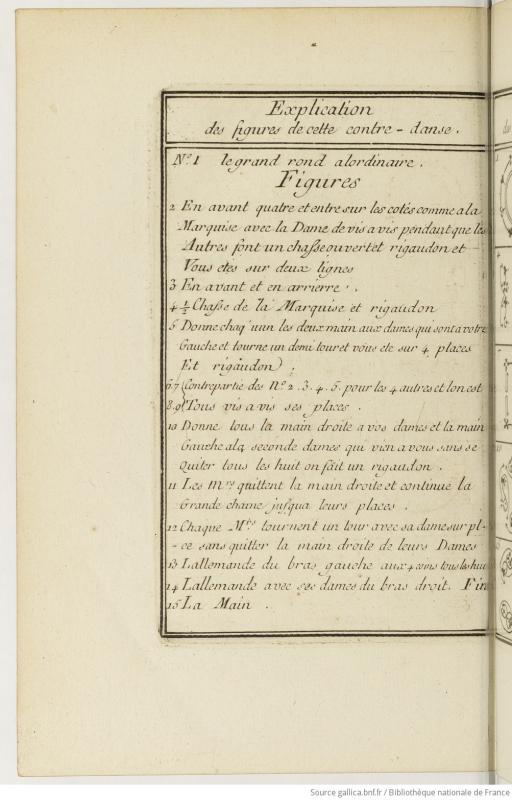 Explication
des figures de cette contre-danse.
No. 1 le grand rond alordinaire.
Figures
2 En avant quatre et entre sur les cotés comme a la
Marquise avec la Dame de vis a vis pendant que les
Autres font un chasse ouvert et rigaudon et
Vous etes sur deux lignes
3 En avant et en arriere.
4 1/2 Chasse de la Marquise et rigaudon
5 Donne chaq'uun les deux main aux dames qui sont a votre
Gauche et tourne un demi tour et vous ete sur 4 places
Et rigaudon.
6.7 Contrepartie des No. 2. 3. 4. 5. pour les 4 autres et lon est
8.9 Tous vis a vis ses places.
10 Donne tous la main droite a vos dames et la main
Gauche ala seconde dames qui vien a vous sans se
Quiter tous les huit on fait un rigaudon.
11 Les Mrs quittent la main droite et continue la
Grande chaine jusqua leurs places.
12 Chaque Mrs tournent un tour avec sa dame sur pl-
-ce sans quitter la main droite de leurs Dames
13 Lallemande du bras gauche aux 4 coins tous les huit
14 Lallemande avec ses dames du bras droit. Fin
15 La Main.
Source gallica.bnf.fr / Bibliothèque nationale de France